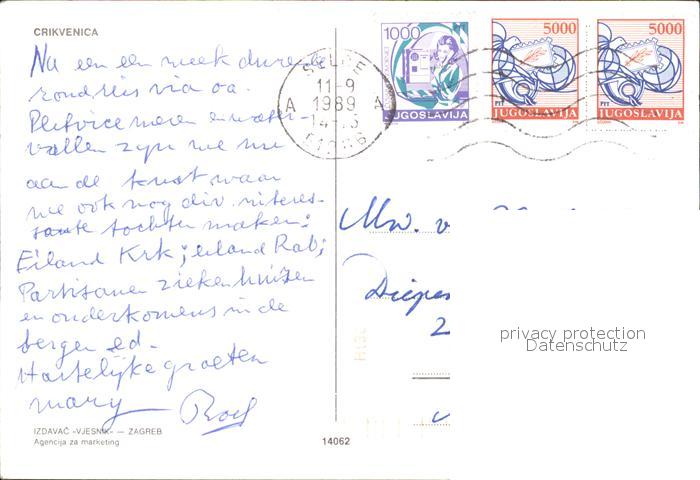 CRIKVENICA
Na een een week durende
rondreis via oa.
Plitvice meren en water-
vallen zijn we nu
aan de kust waar
we ook nog div. interes-
sante tochten maken:
Eiland Krk; eiland Rab;
Partisanen ziekenhuizen
en onderkomens in de
bergen ed.
Hartelijke groeten
Mary
IZDAVAČ «VJESNIK» — ZAGREB
Agencija za marketing
14062
1000
JUGOSLAVIJA
5000
PTT
JUGOSLAVIJA
5000
PTT
JUGOSLAVIJA
SELCE
11-9
A 1989 A
Mw. v
2
privacy protection
Datenschutz